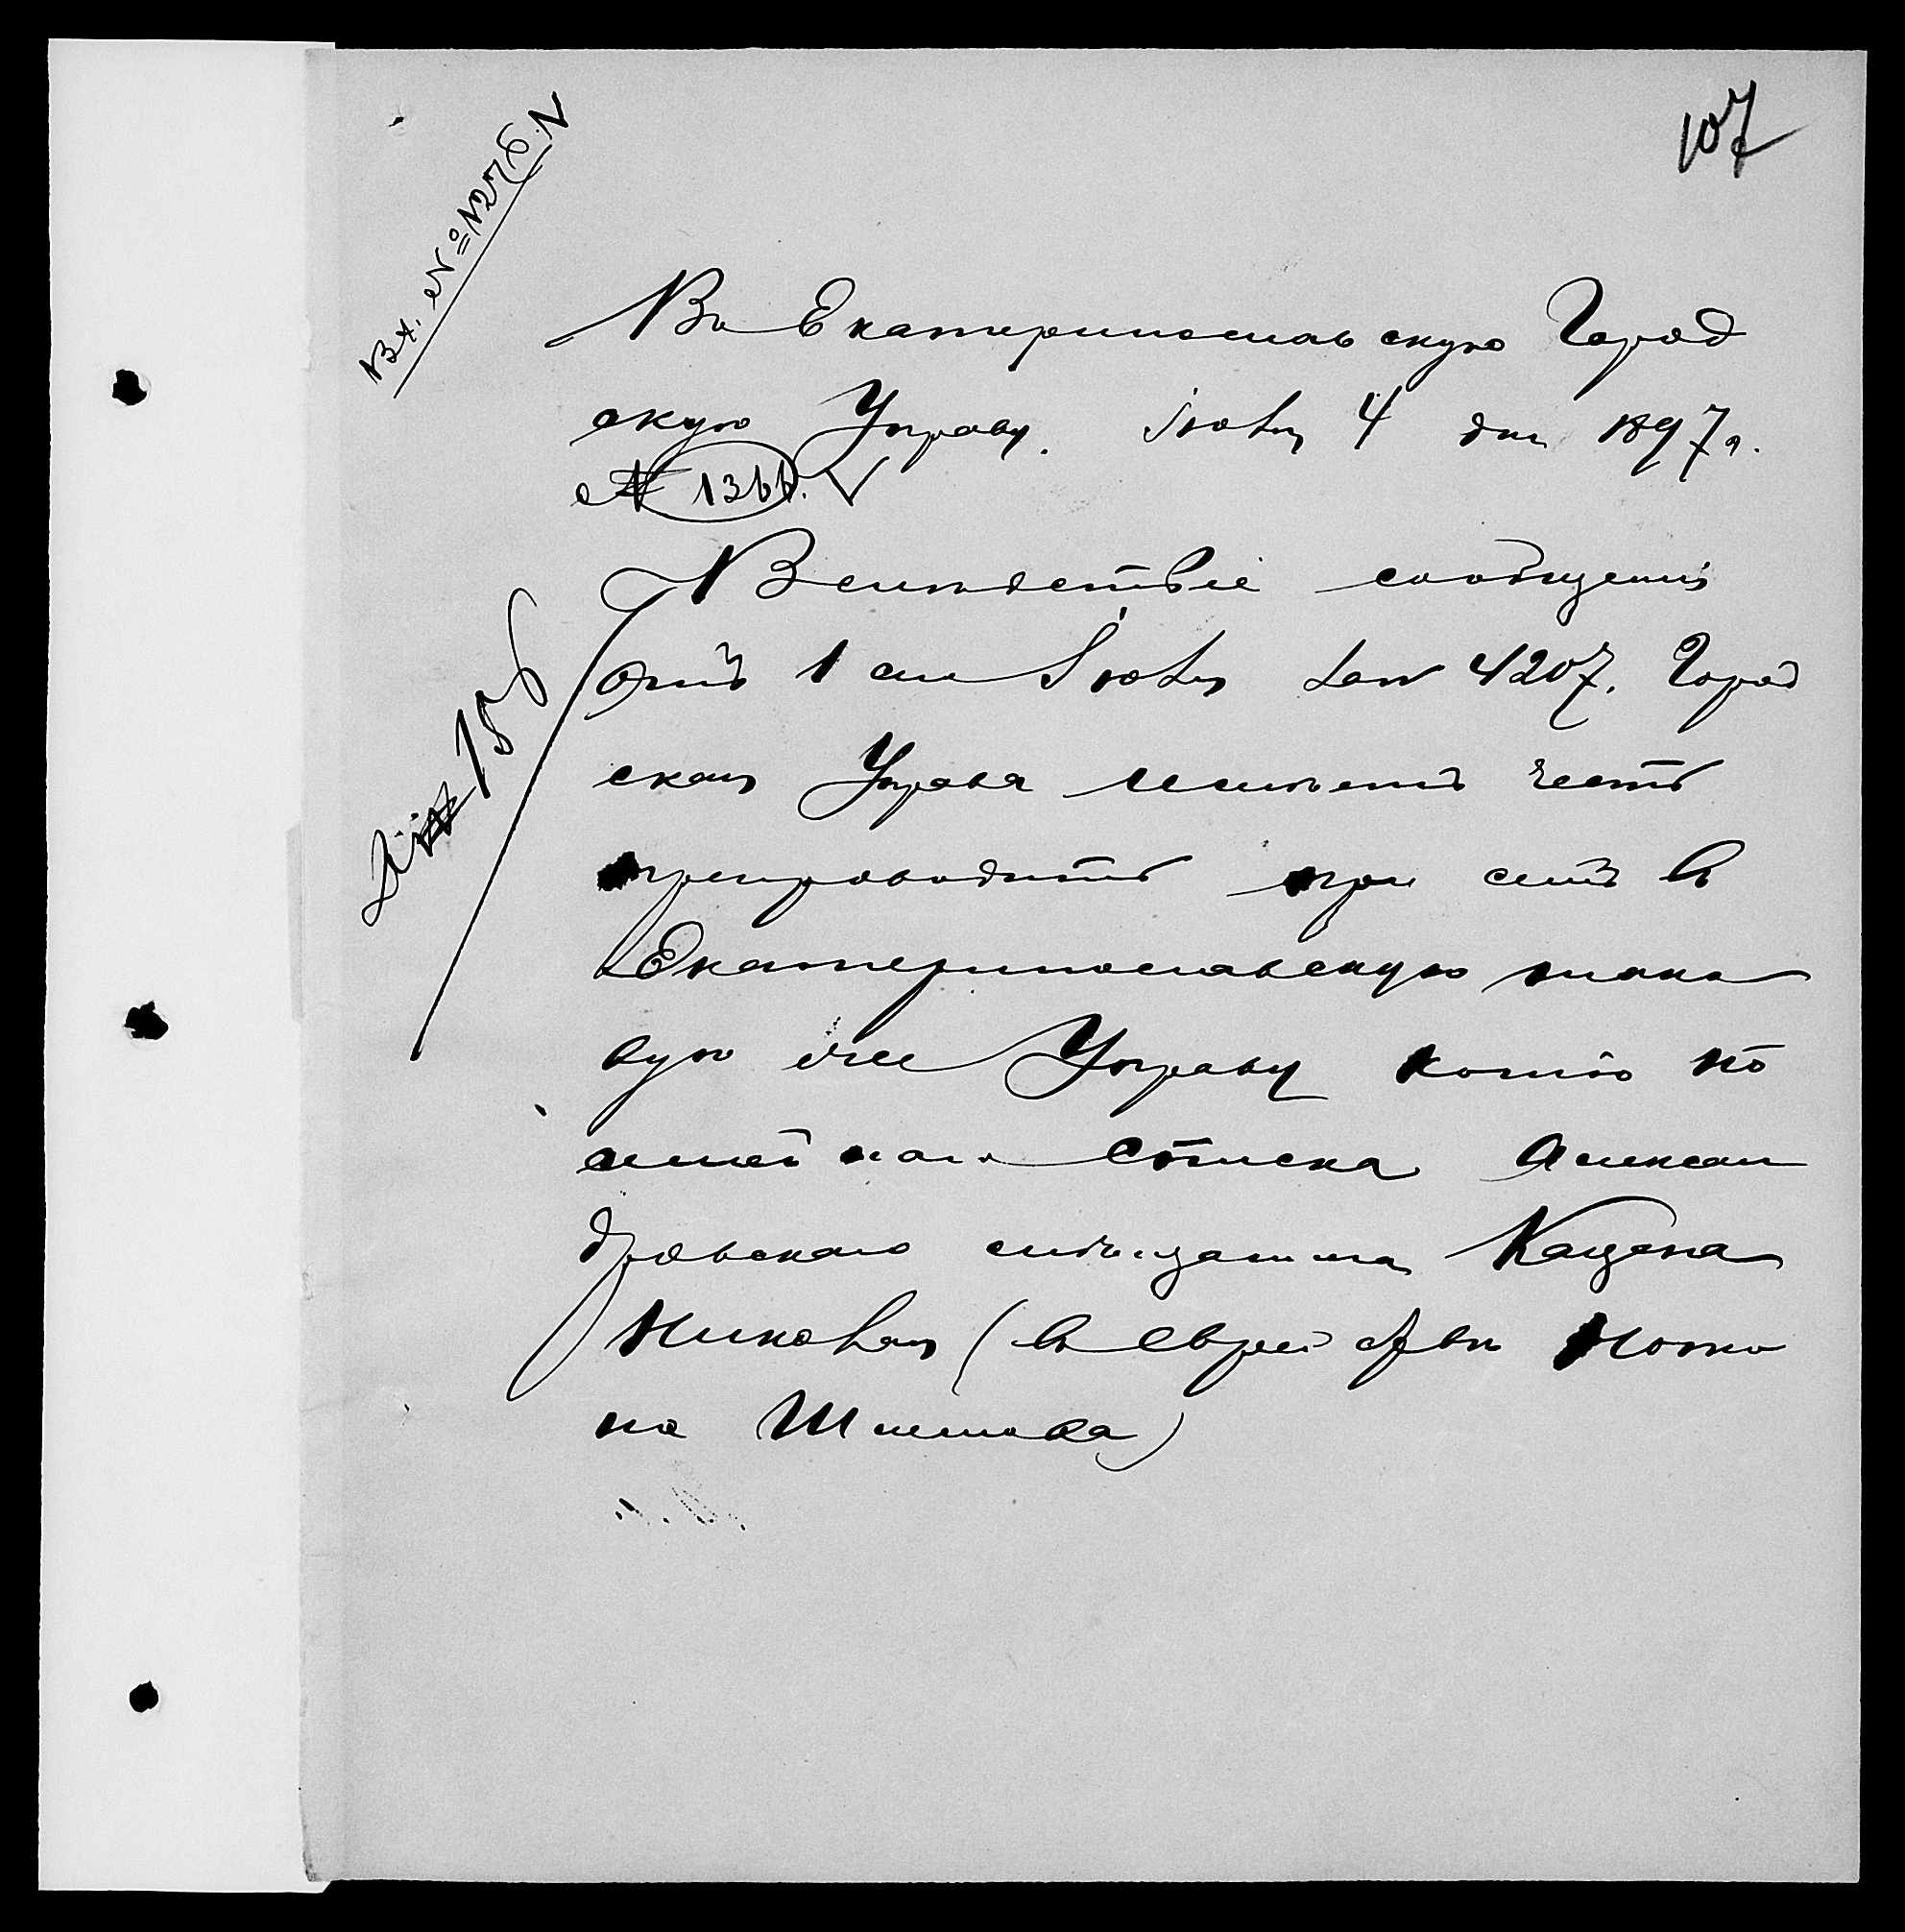 107
Вх. № 1227
Въ Екатеринославскую Город
скую Управу. Іюля 4 дня 1897 г.
№ 1366.
Вслѣдствіе сообщенія
отъ 1 сего Іюля за № 4207. Город
ская Управа имѣетъ честь
препроводить при семъ въ
Екатеринославскую тако
вую же Управу копію по
семейнаго списка Алексан
дровскаго мѣщанина Кацена
Николая (въ Еврействѣ Нотко
на Шлемова)